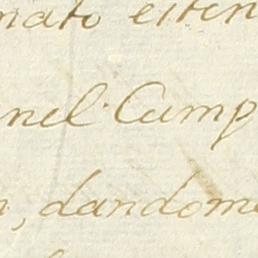 nato esten
nel Camp
, dandome